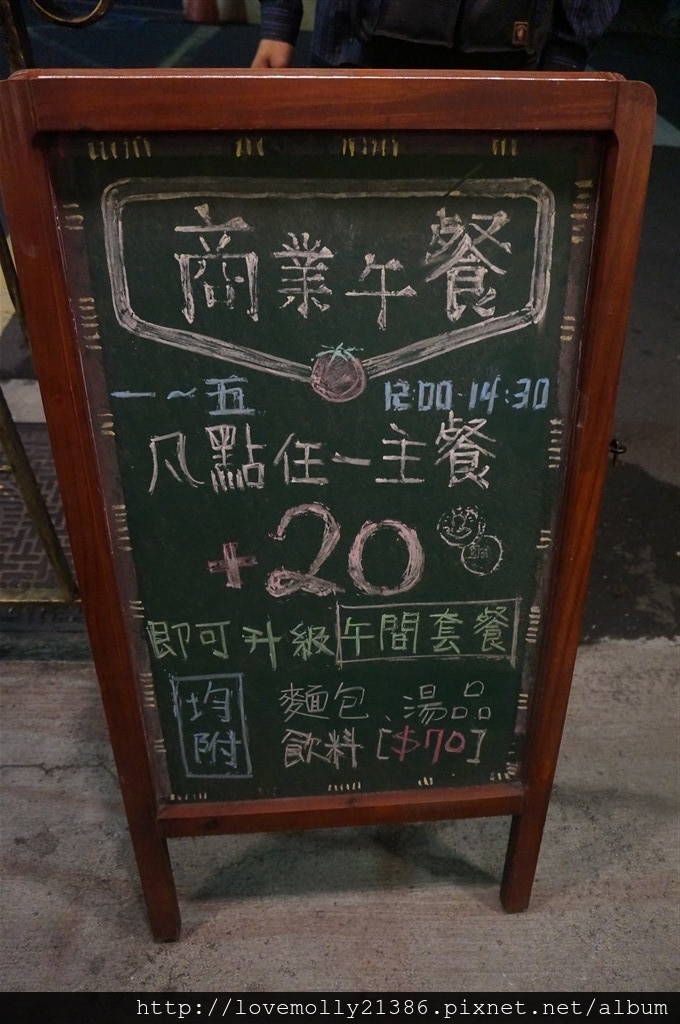 商業午餐
一~五 12:00-14:30
凡點任一主餐
+20
即可升級午間套餐
均附 麵包、湯品
飲料[$70]
http://lovemolly21386.pixnet.net/album